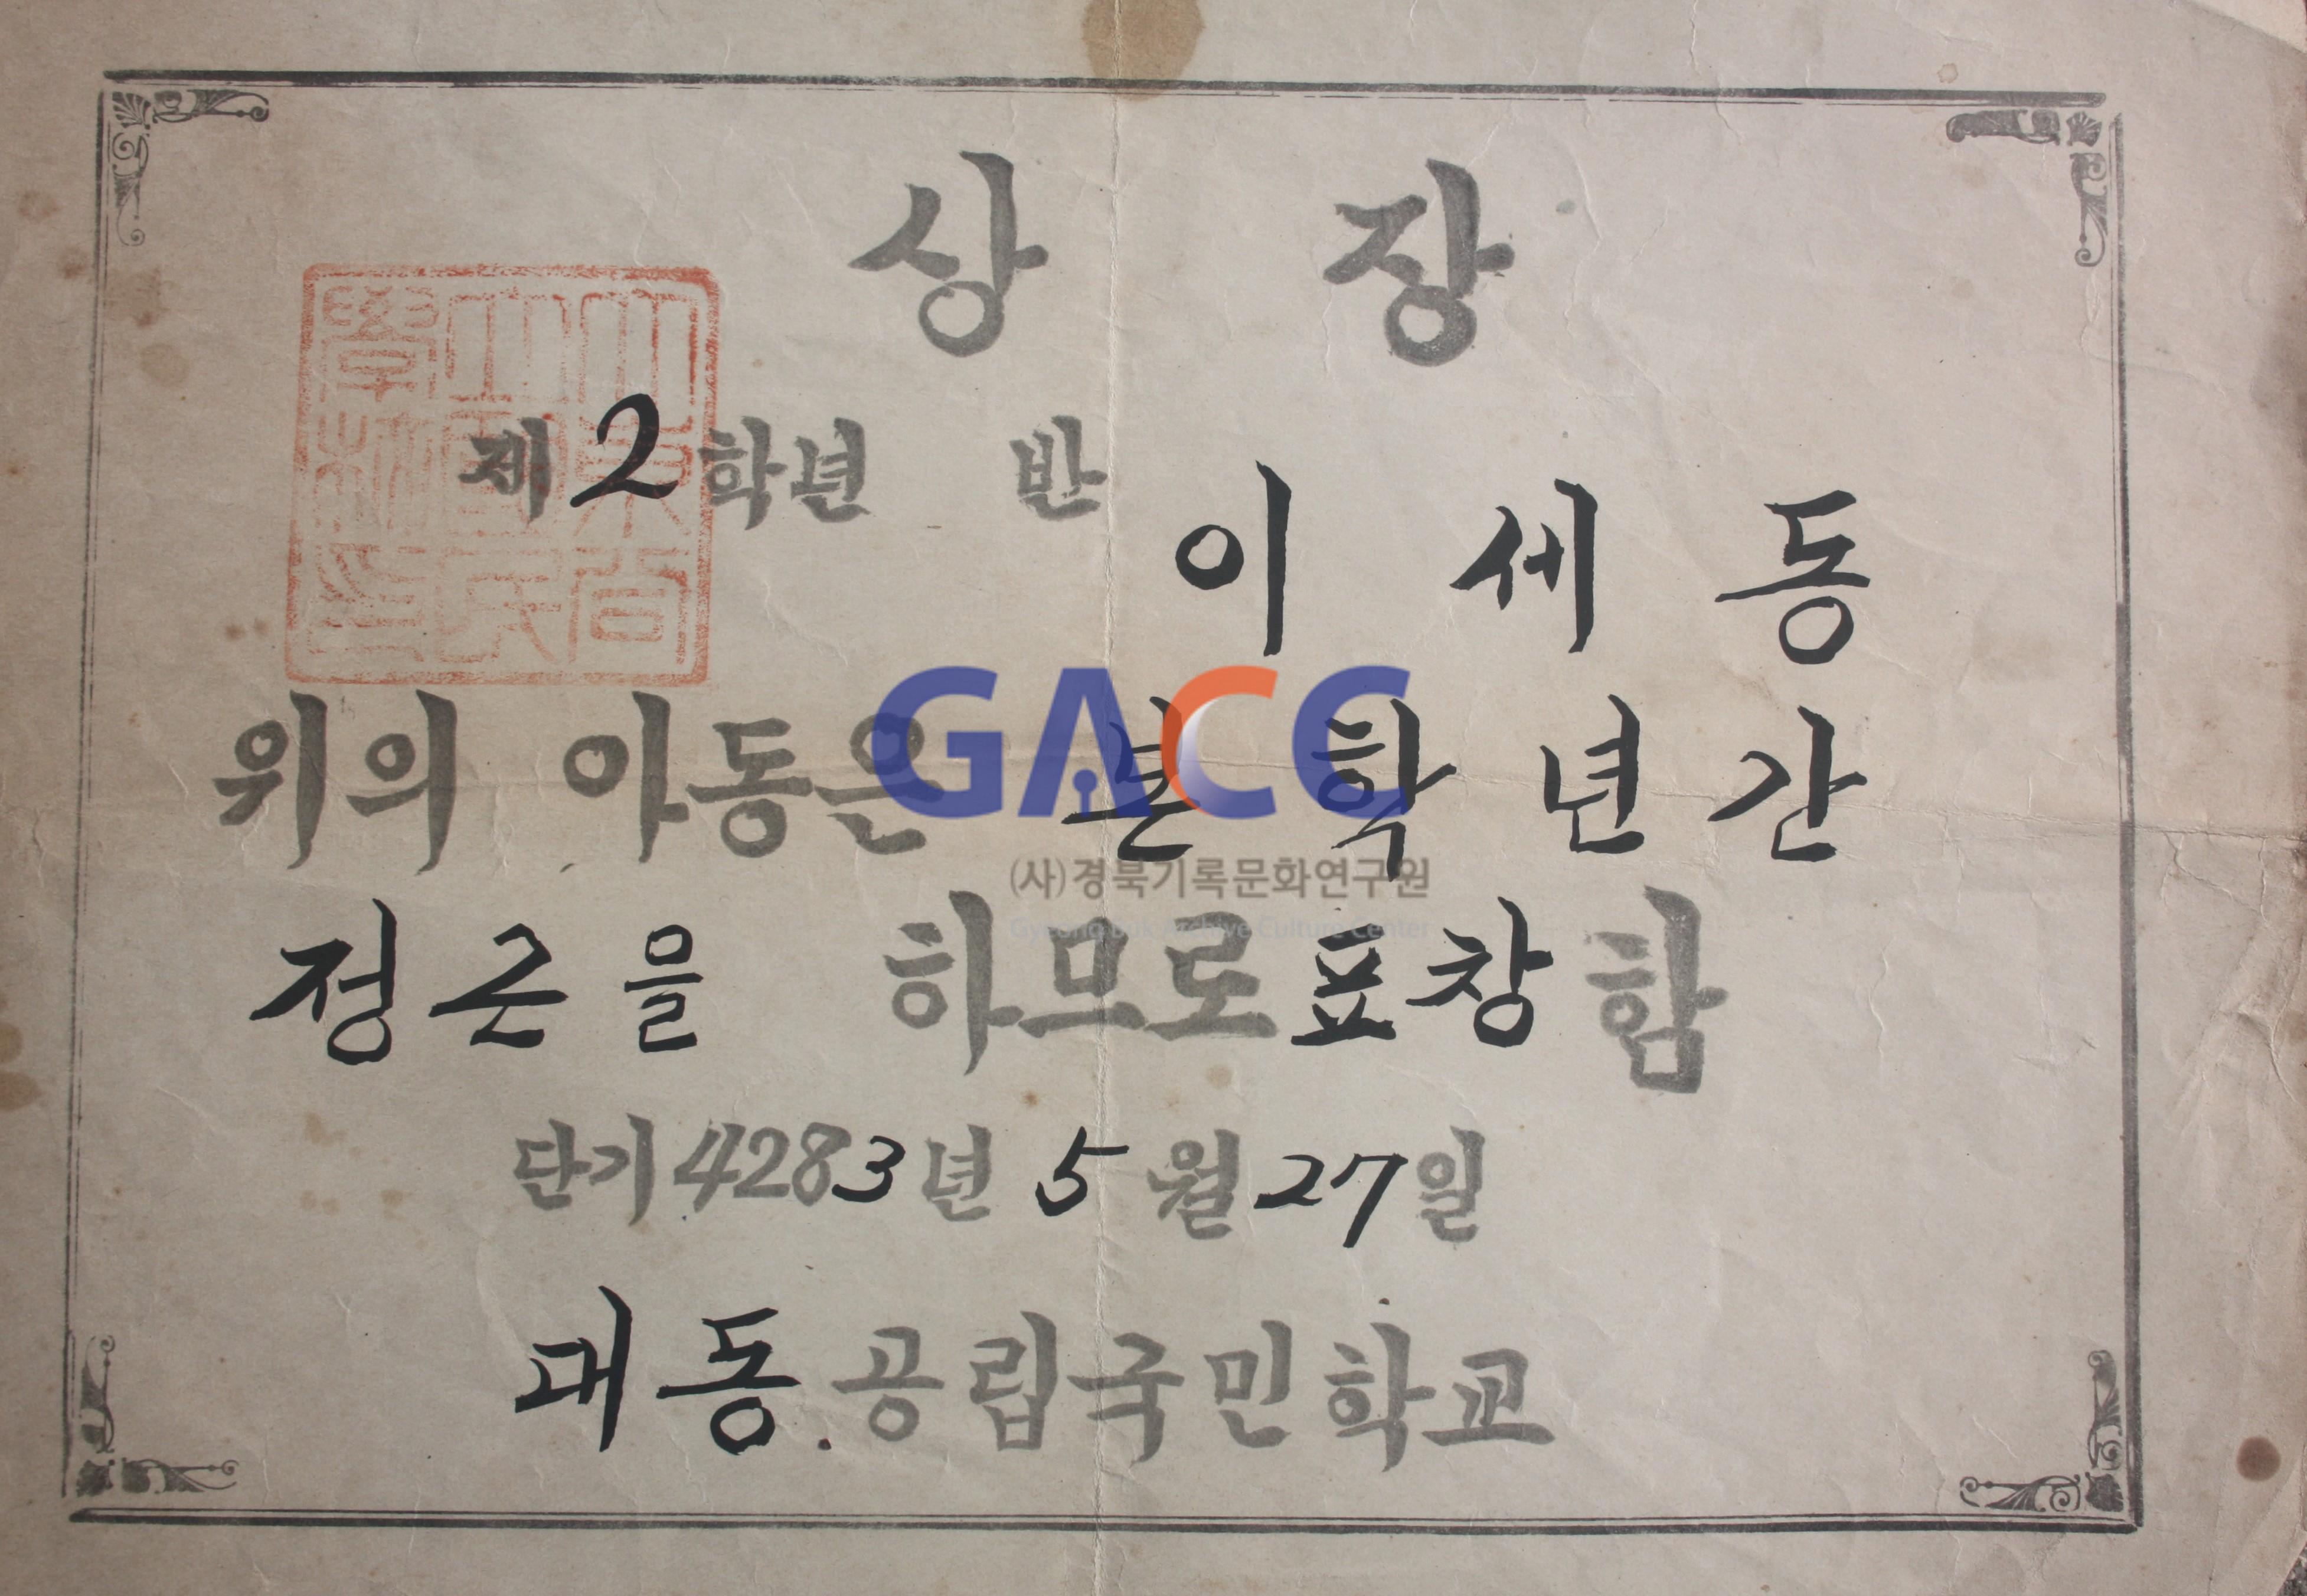 상 장
제 2 학년 반
이 세 동
위의 아동은 본 학 년 간
정 근 을 하므로 표창 함
단기 4283 년 5 월 27 일
대 동 공립국민학교
GACC
(사)경북기록문화연구원
Gyeong Buk Archive Culture Center